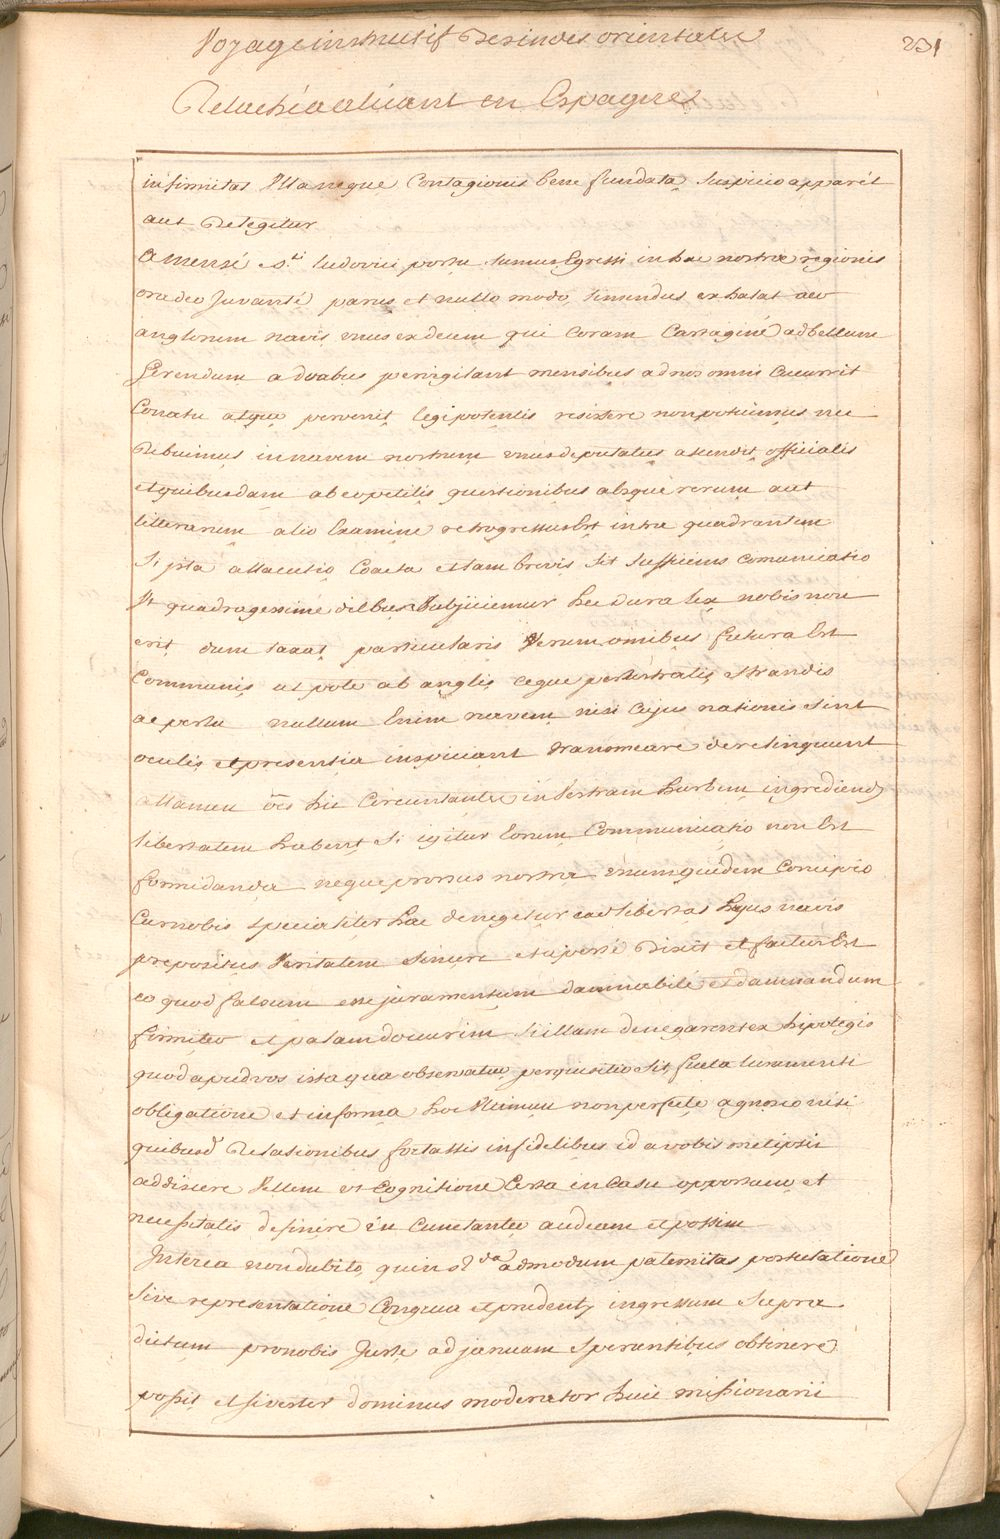 Voyage instructif Des indes orientales
231
Relache a alicant en Espagne
infirmitas Ulla neque Contagionis bene fundata suspicio apparét
aut Detegitur
A mensé s.ti ludovici portu sumus Egressi in hac nostræ regionis
ora deo Juvanté parus et nullo modo, timendus exhalat aer
anglorum navis unus ex decem qui Coram Cartaginé ad bellum
Gerendum a duabus pervigilant mensibus ad nos omni Cucurrit
Conatu atque pervenit, legi potentis resistere non potuimus nec
Debuimus in navem nostrum unus deputatus asendit officialis
et quibusdam ab eo petitis questionibus absque rerum aut
litterarum alio Examine retrogressus Est intra quadrantem
Si ista allocutio Coacta et tam brevis sit sufficiens comunicatio
Ut quadragessimé diebus Subjiciemur hec dura lex nobis non
erit dum taxat particularis Verum omibus futura Est
Communis ut pote ab anglis eque perlustratis, et tandis
aeportu nullum Enim navem nisi Cujus nationis sint
oculis et presentia inspiciant transmeare derelinquent
attamen oēs hic Circunstantes in Vestram hurbem ingrediendi
libertatem habent, Si igitur Eorum Communicatio non Est
formidanda neque prorsus nostra unum quidem Concipio
Cur nobis specialiter hæc denegetur ead libertas hujus navis
prepositus Veritatem sincere et aperté Dixit et factus Est
eo quod falsum esse juramentum damnabilé et damnandum
firmiter et palam docuerim si illam denegarent ex hipotegis
quod apud vos ista qua observatur perquisitio sit facta Juramenti
obligatione et in forma hoc Utimum non perfecte agnosco nisi
quibusd Relationibus fortassis infidelibus id a vobis metipsis
addiscere Vellem ut Cognitione Certa in Casu opportuno et
necessitatis definire in Cunctanter audeam et possim
Interea non dubito, quin R da admodum paternitas postulatione
sive representatione Congrua et prudenti, ingressum supra
dictum pro nobis Juste ad januam sperantibus obtinere
possit, et si vester dominus moderator huic missionarii